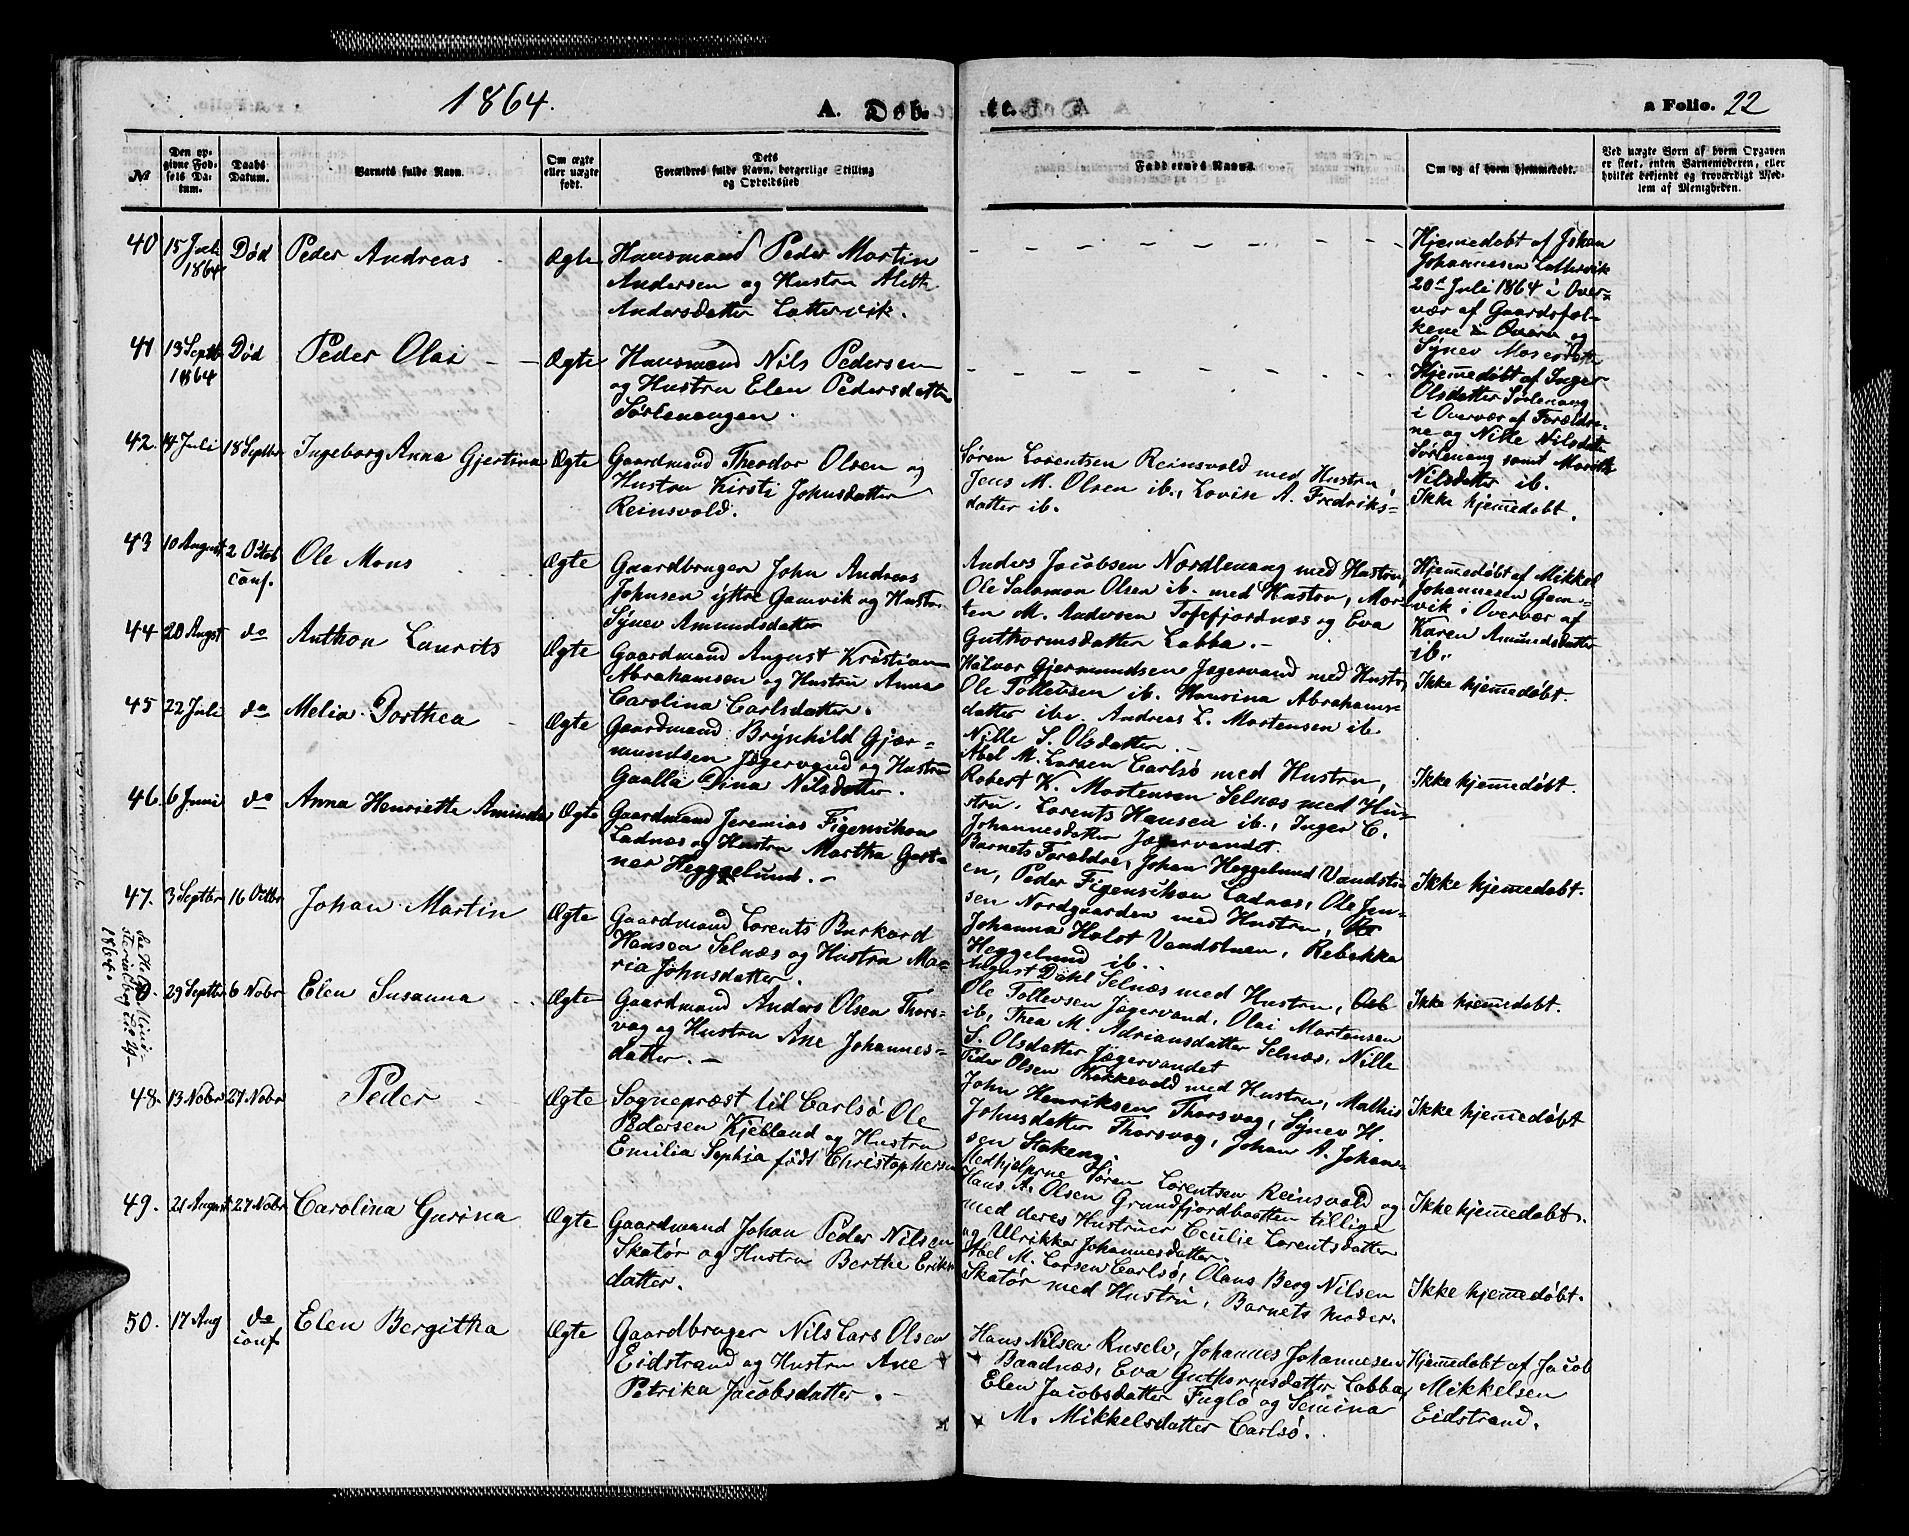 1864.
A. Døbte.
a Folio. 22
№
Den opgivne Fødsels Datum.
Daabs Datum.
Barnets fulde Navn.
Om ægte eller uægte født.
Dets Forældres fulde Navn, borgerlige Stilling og Opholdssted
Faddernes Navne.
Om og af hvem hjemmedøbt.
Ved uægte Børn af hvem Opgaven er skeet, enten Barnemoderen, eller hvilket bekjendt og troværdigt Medlem af Menigheden.
40 15 Juli 1864 Død Peder Andreas Ægte
Huusmand Peder Martin
Andersen og Hustru Aleth
Andersdatter Lattervik.
Hjemedøbt af Johan
Johannesen Lattervik
20de Juli 1864 i Over-
vær af Gaardsfol-
kene og
Synev Mosesdatter
41 13 Septbr 1864 Død Peder Olai Ægte
Huusmand Nils Pedersen
og Hustru Elen Pedersdatter
Sørlenangen.
Hjemedøbt af Inger
Olsdatter Sørlenang
i Overvær af Forældre-
ne og Nille Nilsdatter
Sørlenang samt Marith
Nilsdatter ib.
42. 14 Juli 18 Septbr Ingeborg Anna Gjertina Ægte
Gaardmand Theodor Olsen og
Hustru Kirsti Johnsdatter
Reinsvold.
Søren Lorentsen Reinsvold med Hustru,
Jens M. Olsen ib., Lovise A. Fredriks-
datter ib.
Ikke hjemedøbt.
43 10 August 2 Octob conf. Ole Mons Ægte
Gaardbruger John Andreas
Johnsen yttre Gamvik og Hustr.
Synev Amundsdatter
Anders Jacobsen Nordlenang med Hustru,
Ole Salamon Olsen ib. med Hustru, Mor-
ten M. Andersen Tofefjordnæs og Eva
Guthormsdatter Labba.-
Hjemedøbt af Mikkel
Johannesen Gam-
vik i Overvær af
Karen Amundsdatter
ib.
44 20 Augst do Anthon Laurits Ægte
Gaardmand August Kristian
Abrahamsen og Hustru Anna
Carolina Carlsdatter.
Halvor Gjermundsen Jægervand med Hustr,
Ole Tollevsen ib. Hansina Abrahams-
datter ib. Andreas L. Mortensen ib
Nille S. Olsdatter.
Ikke hjemedøbt.
45 22 Juli do Melia Dorthea Ægte
Gaardmand Brynhild Gjær-
mundsen Jægervand og Hustru
Gaalla Dina Nilsdatter.
Abel M. Larsen Carlsø med Hustru,
Robert K. Mortensen Selnæs med Hu-
stru. Lorents Hansen ib., Inger C.
Johannesdatter Jægervandet.
Ikke hjemedøbt.
46. 6 Juni do Anna Henriette Aminda Ægte
Gaardmand Jeremias Figenschou
Ladnæs og Hustru Martha Gert-
ner Heggelund.-
Barnets Forældre, Johan Heggelund Vandstu-
en, Peder Figenschou Ladnæs, Ole Jen-
sen Nordgaarden med Hustru,
Johanna Holst Vandstuen, Rebekka
Heggelund ib.
Ikke hjemedøbt.
47. 3 Septbr 16 Octbr Johan Martin Ægte
Gaardmand Lorents Burkard
Hansen Selnæs og Hustru Ma-
ria Johnsdatter.
August Dahl Selnæs med Hustru,
Ole Tollevsen Jægervand, Olai Mortensen
ib, Thea M. Adriansdatter Selnæs, Nille
S. Olsdatter Jægervandet
Ikke hjemedøbt.
29 Septbr 6 Nobr Elen Susanna Ægte
Gaardmand Anders Olsen Thors-
vag og Hustru Ane Johannes-
datter.-
Peder Olsen Kokkevold med Hustru, Mathis
John Henriksen Thorsvag, Synev H.
Johnsdatter Thorsvag, Johan A. Johan-
sen Stakeng.
Ikke hjemedøbt
48. 13 Nobr 27 Nobr Peder Ægte
Sognepræst til Carlsø Ole
Pedersen Kjelland og Hustru
Emilia Sophia født Christophersen
Medhjelperne Søren Lorentsen Reinsvold og
Hans A. Olsen Grundfjordbotten tillige
med deres Hustruer Cecilie Lorentsdatter
og Ulrikke Johannesdatter.
Ikke hjemedøbt.
49. 21 August 27 Nobr Carolina Gurina Ægte
Gaardmand Johan Peder Nilsen
Skatør og Hustru Berthe Eriks-
datter.
Abel M. Larsen Carlsø, Olaus Berg Nilsen
Skatør med Hustru, Barnets Moder.
Ikke hjemedøbt.
50. 17 Aug do conf Elen Bergitha Ægte
Gaardbruger Nils Lars Olsen
Eidstrand og Hustru Ane
Petrika Jacobsdatter.-
Hans Nilsen Ruselv, Johannes Johannesen
Baadnæs, Eva Guthormsdatter Labba,
Elen Jacobsdatter Fuglø og Semina
M. Mikkelsdatter Carlsø.
Hjemedøbt af Jacob
Mikkelsen
Eidstrand.
1864.